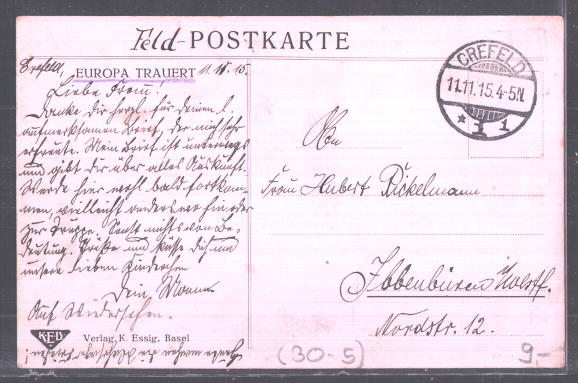 Feld-POSTKARTE
Crefeld, EUROPA TRAUERT 11.11.15.
Liebe Frau!
Danke dir herzl. für deinen l.
aufmerksamen Brief, der mich sehr
erfreute. Mein Brief ist unterwegs
und gibt dir über alles Auskunft.
Werde hier wohl bald fortkom-
men, vielleicht anderswo hin oder
zur Truppe. Sonst nichts von Be-
deutung. Grüße und küsse dich und
unsere lieben Kinderchen
Dein Mann.
Auf Wiedersehen.
K.E.B
Verlag, K. Essig, Basel
CREFELD
11.11.15.4-5N.
* 1 1
An
Frau Hubert Bickelmann
Ibbenbüren i/Westf.
Nordstr. 12.
(30-5)
9.-